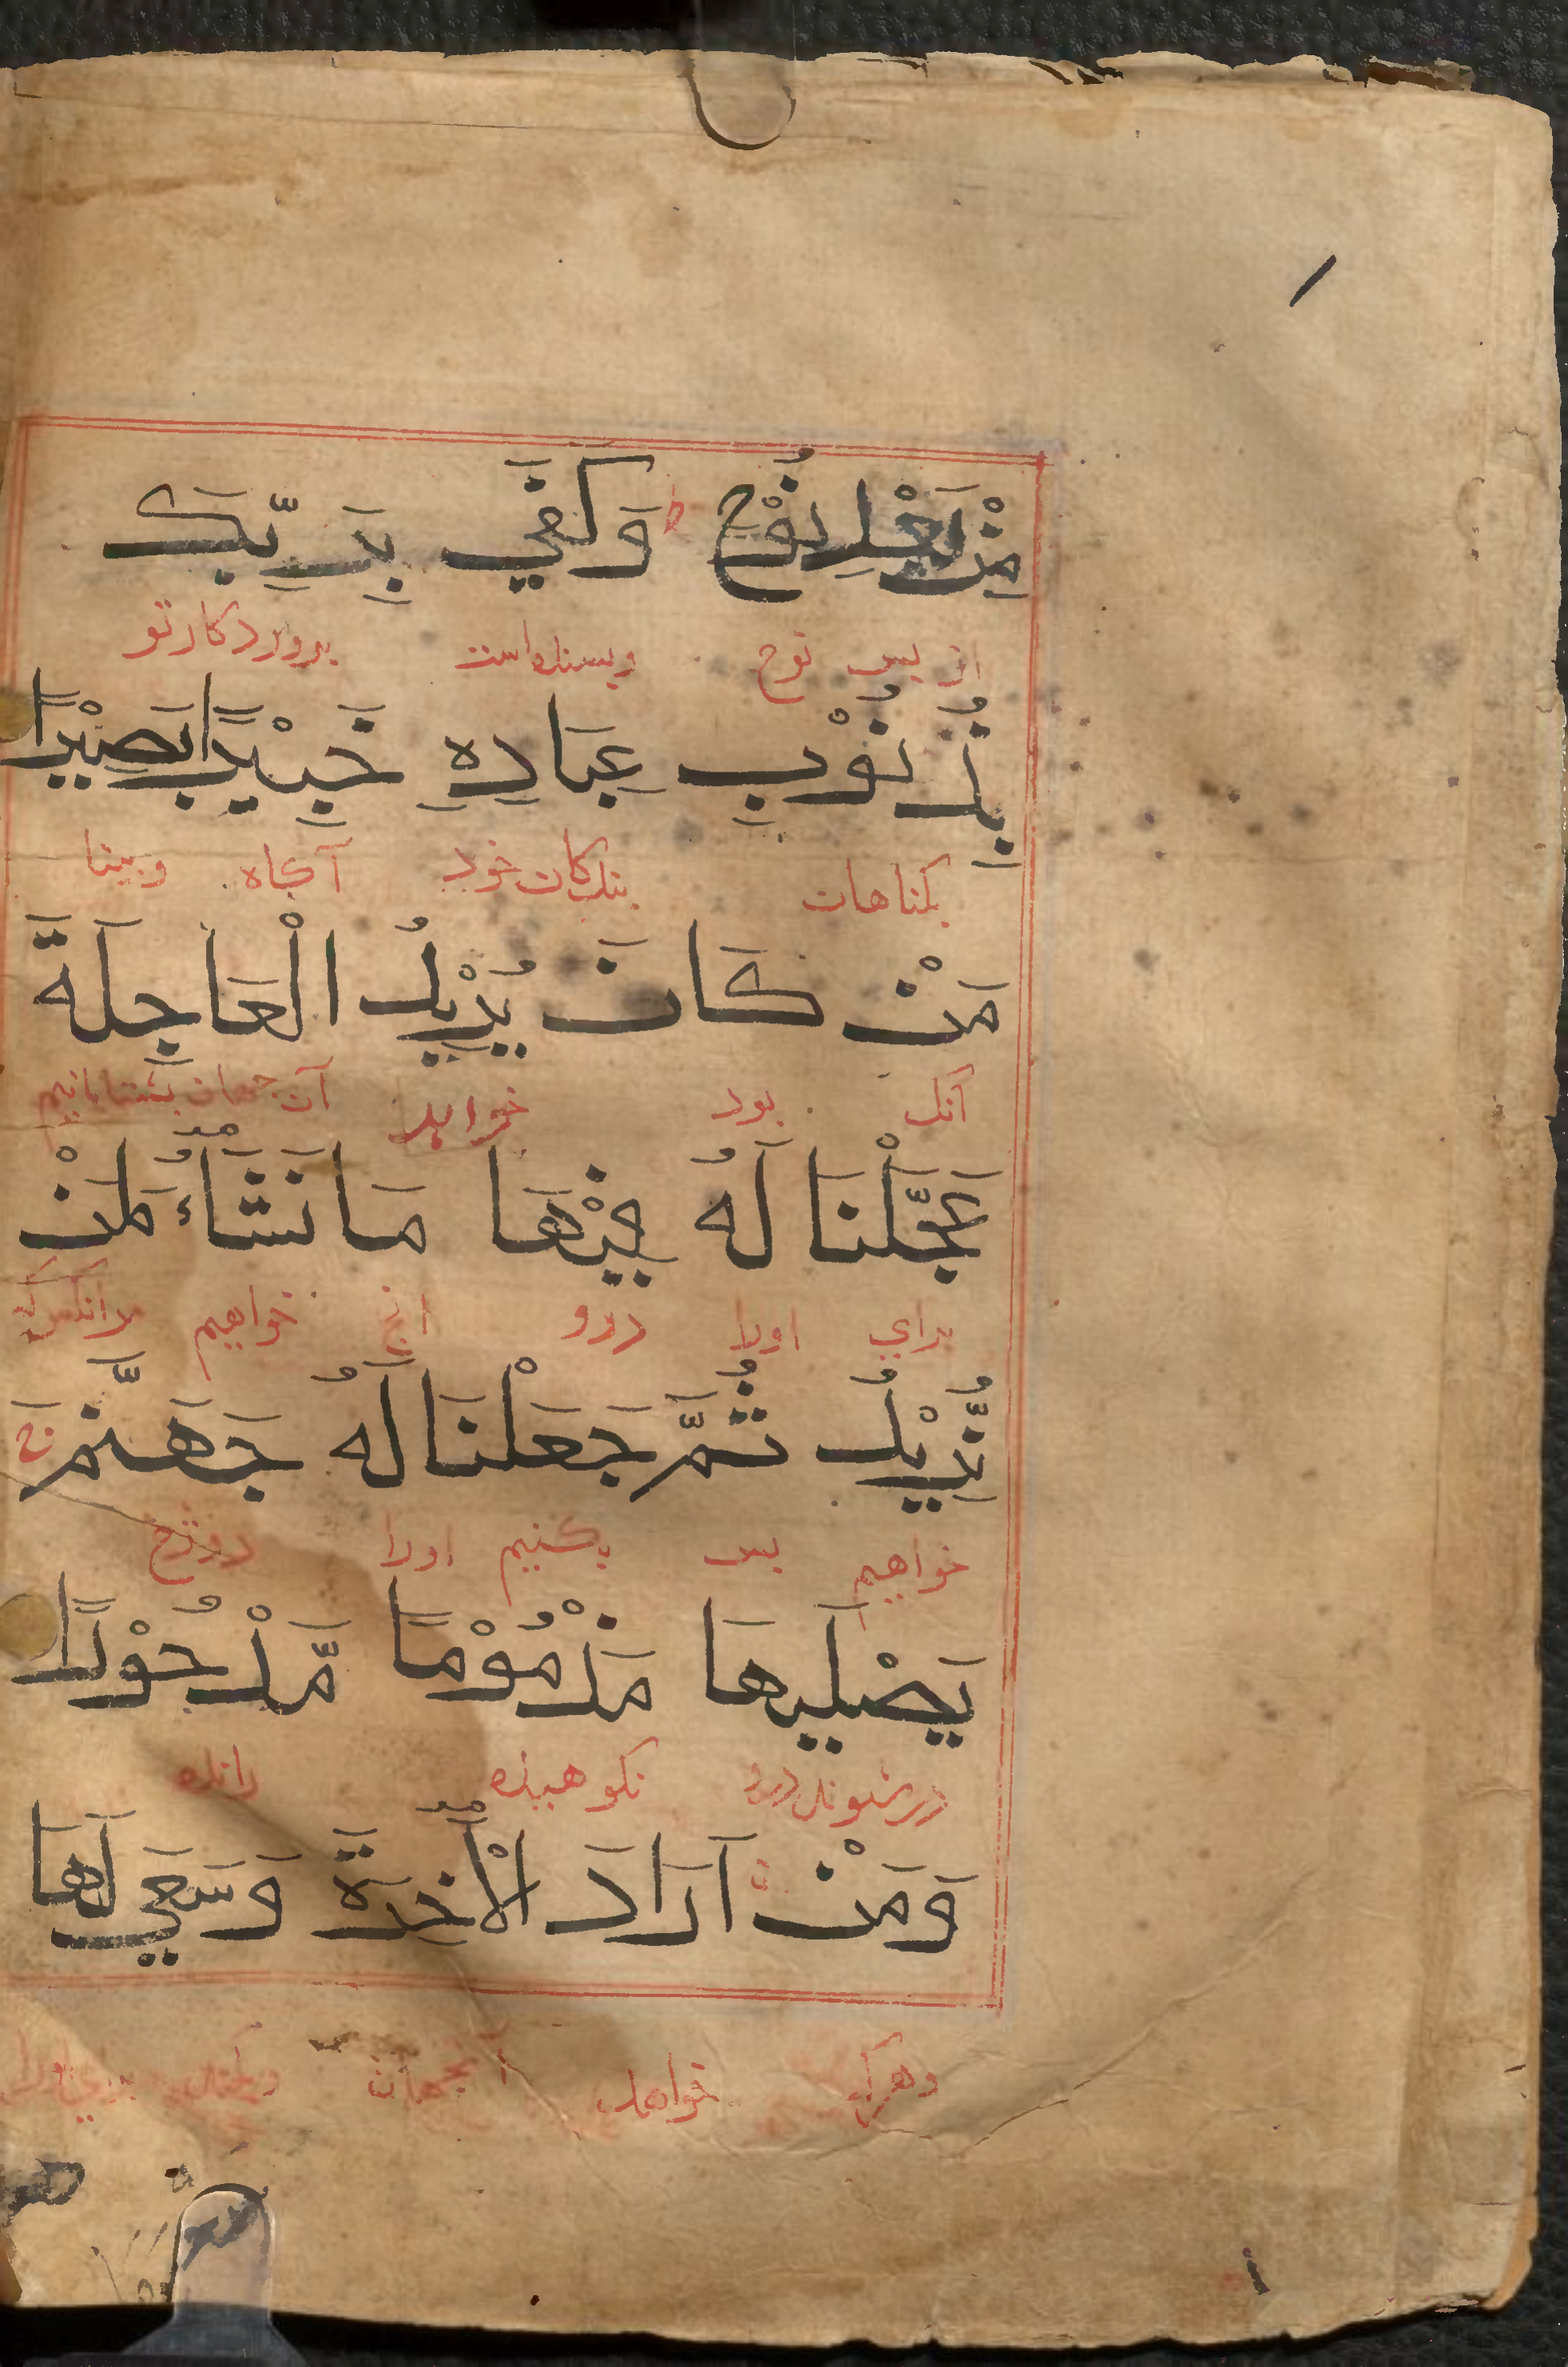 مِنْۢ بَعْدِ نُوْحٍ ط وَكَفٰي بِرَبِّكَ
از پس نوح وبسنده است پروردکار تو
بِذُنُوْبِ عِبَادِهٖ خَبِيْرًا بَصِيْرًا
بکناهان بندکان خود آکاه وبینا
مَنْ كَانَ يُرِيْدُ الْعَاجِلَةَ
آنک بود خواهد آن جهان بشتابانیم
عَجَّلْنَا لَهٗ فِيْهَا مَا نَشَآءُ لِمَنْ
برای اورا درو انچ خواهیم مرانکس که
نُّرِيْدُ ثُمَّ جَعَلْنَا لَهٗ جَهَنَّمَ ج
خواهیم پس بکنیم اورا دوزخ
يَصْلٰيهَا مَذْمُوْمًا مَّدْحُوْرًا
درشوند درو نکوهیذه رانده
وَمَنْ اَرَادَ الْاٰخِرَةَ وَسَعٰي لَهَا
وهرک خواهد آنجهان وبکند برای اورا